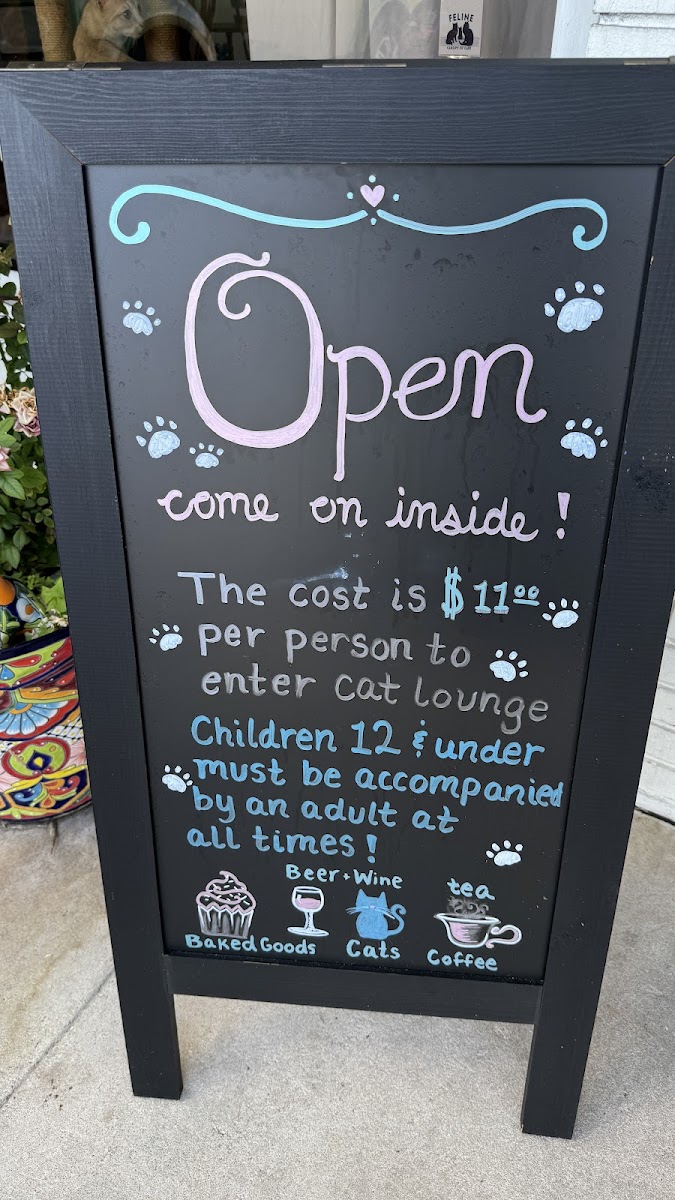 FELINE
Open
come on inside!
The cost is $11.00
per person to
enter cat lounge
Children 12 & under
must be accompanied
by an adult at
all times!
Beer + Wine
tea
Baked Goods
Cats
Coffee